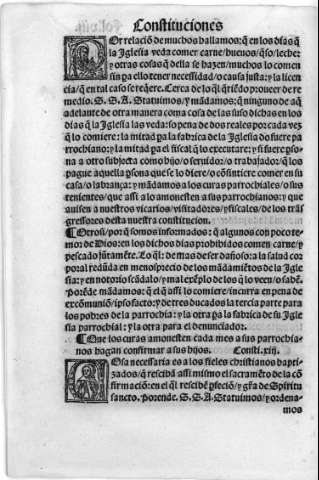 Constituciones
Or relaciõ de muchos hallamos: q̃ en los dias q̃
la Iglesia veda comer carne/huevos/q̃so/leche:
y otras cosas q̃ della se hazen/muchos lo comen
sin pa ello tener necessidad/o causa justa: y la licen
cia/q̃ en tal caso se req̃ere. Cerca de lo q̃l q̃riẽdo proueer de re
medio. S. S. A. Statuimos/y mãdamos: q̃ ninguno de aq̃
adelante de otra manera coma cosa de las suso dichas en los
dias q̃ la Iglesia las veda: so pena de dos reales por cada vez
q̃ lo comiere: la mitad pa la fabrica de la Iglesia do fuere pa
rrochiano: y la mitad pa el fiscal q̃ lo executare: y si fuere pso
na a otro subjecta como hijo/o seruidor/o trabajador/q̃ los
pague aquella psona que se lo diere/o cõsintiere comer en su
casa/o labrança: y mãdamos a los curas parrochiales/o sus
tenientes/que assi lo amonesten a sus parrochianos: y que
auisen a nuestros vicarios/visitadores/y fiscales/de los trãs
gressores desta nuestra constitucion.
¶ Otrosi/porq̃ somos informados: q̃ algunos con poco te
mor de Dios: en los dichos dias prohibidos comen carne/y
pescado jũtamẽte. Lo q̃l: de mas de ser dañoso: a la salud cor
poral redũda en menosprecio de los mãdamiẽtos de la Igle
sia: y en notorio escãdalo/y mal exẽplo de los q̃ lo veen/o sabẽ.
Porẽde mãdamos: que el q̃ assi lo comiere/incurra en pena de
excomuniõ/ipso facto: y de tres ducados la tercia parte para
los pobres de la parrochia: y la otra pa la fabrica de su Igle
sia parrochial: y la otra para el denunciador.
¶ Que los curas amonesten cada mes a sus parrochia
nos hagan confirmar a sus hijos. Consti. xiij.
Cosa necessaria es a los fieles christianos bapti
zados/q̃ rescibã assi mismo el sacramẽto de la cõ
firmaciõ: en el q̃l rescibẽ pfeciõ/y grã de Spiritu
sancto. Porende. S. S. A. Statuimos/y ordena-
mos